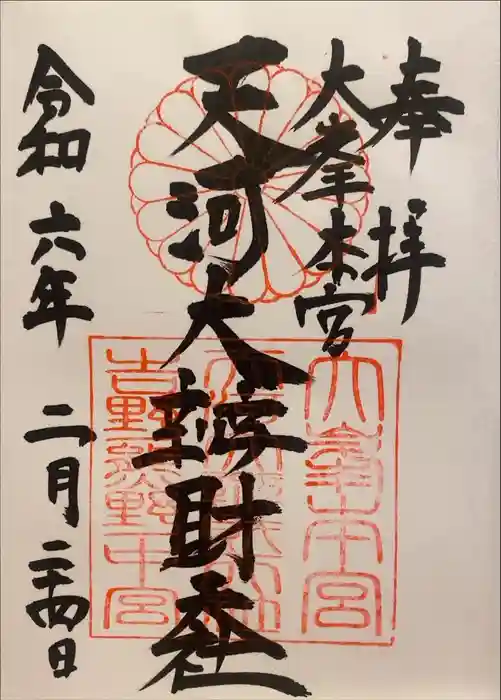 奉拝
大峯本宮
天河大辨財天社
令和六年二月二十四日
大峯本宮
吉野熊野中宮